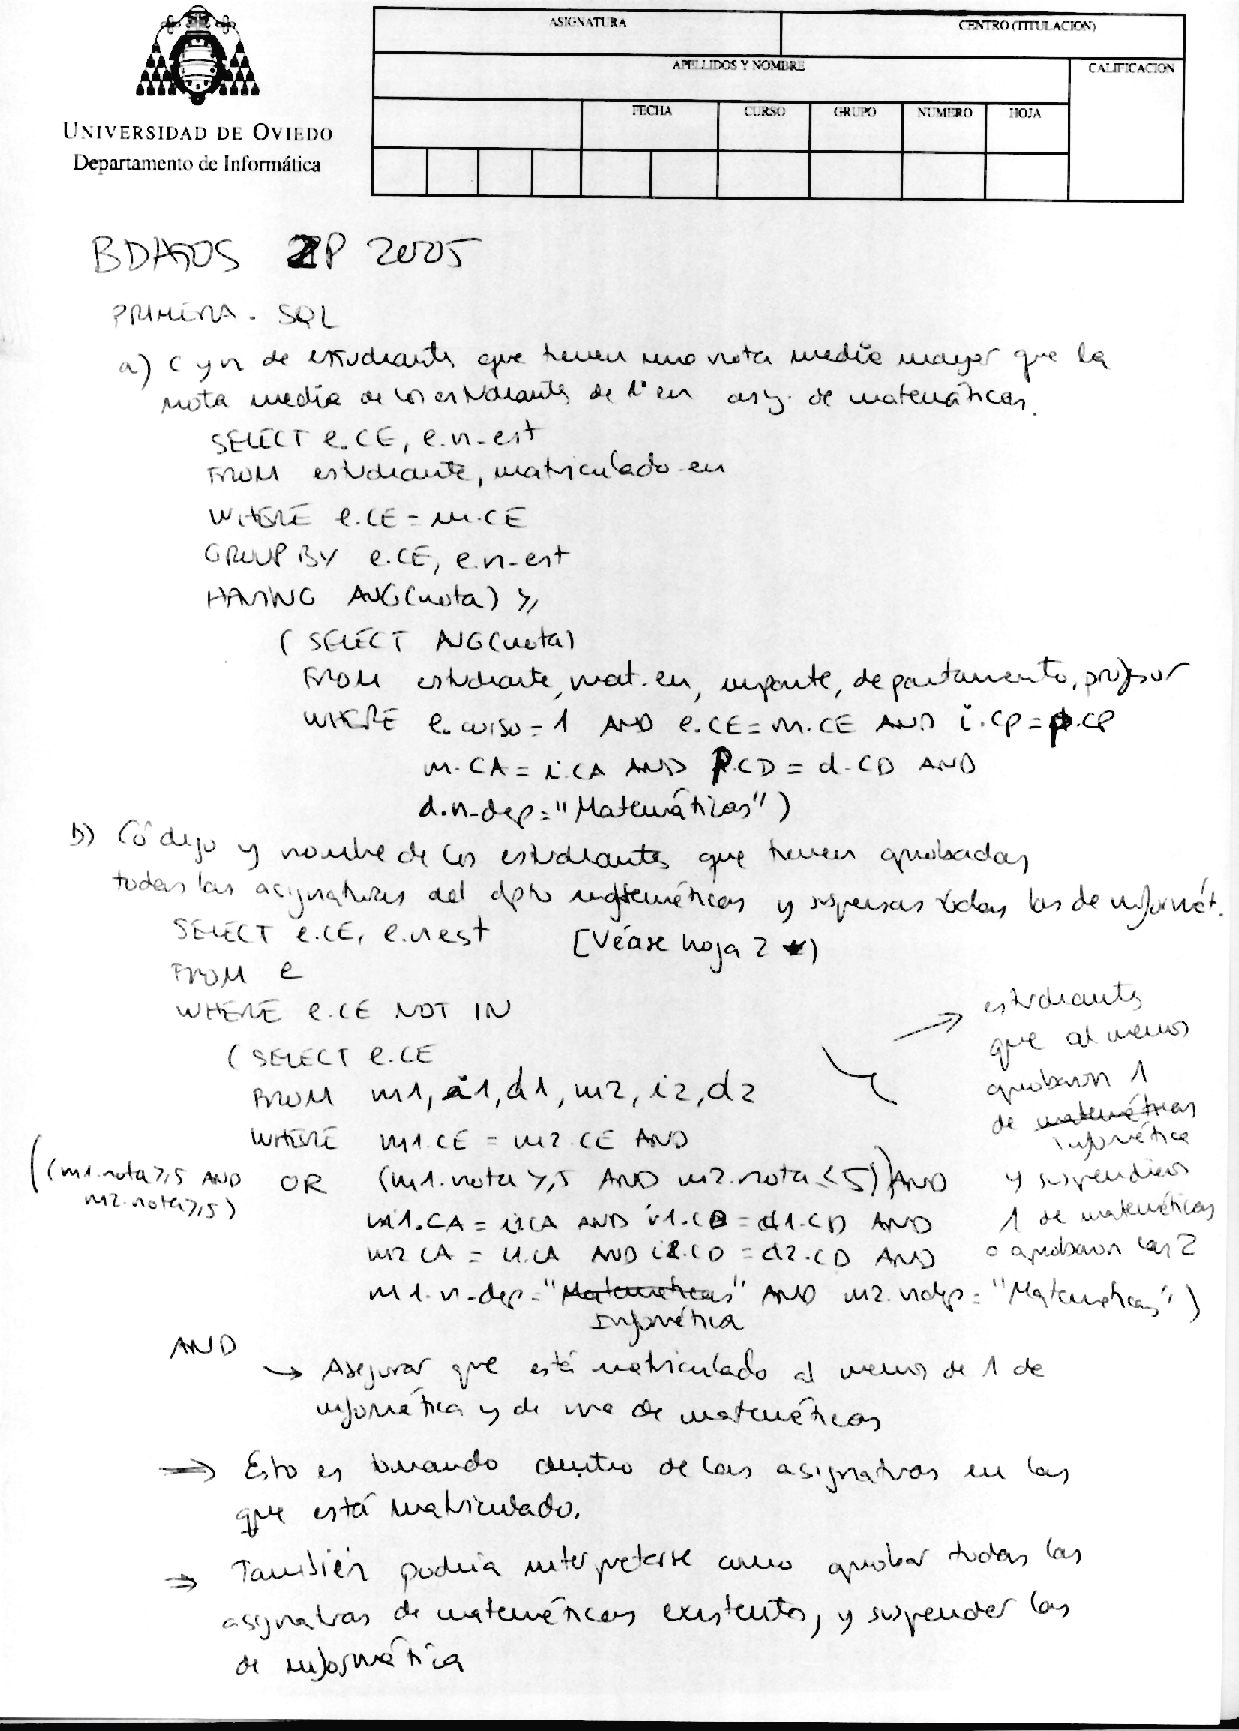 ASIGNATURA
CENTRO (TITULACION)
APELLIDOS Y NOMBRE
CALIFICACION
FECHA CURSO GRUPO NUMERO HOJA
UNIVERSIDAD DE OVIEDO
Departamento de Informática
BDATOS 2P 2005
PRIMERA. SQL
a) C y n de estudiantes que tienen una nota media mayor que la
nota media de los estudiantes de 1º en asig. de matemáticas.
SELECT e.CE, e.n-est
FROM estudiante, matriculado en
WHERE e.CE = m.CE
GROUP BY e.CE, e.n-est
HAVING AVG(nota) >=
( SELECT AVG(nota)
FROM estudiante, mat. en, imparte, departamento, profesor
WHERE e.curso = 1 AND e.CE = m.CE AND i.CP = p.CP
m.CA = i.CA AND P.CD = d.CD AND
d.n-dep = "Matemáticas" )
b) Código y nombre de los estudiantes que tienen aprobadas
todas las asignaturas del dpto matemáticas y suspensas todas las de informát.
SELECT e.CE, e.nest [Véase hoja 2 *)
FROM e
WHERE e.CE NOT IN
( SELECT e.CE
FROM m1, i1, d1, m2, i2, d2
WHERE m1.CE = m2.CE AND
((m1.nota >= 5 AND m2.nota >= 5) OR (m1.nota >= 5 AND m2.nota < 5)) AND
m1.CA = i1.CA AND i1.CD = d1.CD AND
m2.CA = i1.CA AND i2.CD = d2.CD AND
m1.n-dep = "Matemáticas" AND m2.ndep = "Matemáticas" )
Informática
estudiantes
que al menos
aprobaron 1
de matemáticas
informática
y suspendieron
1 de matemáticas
o aprobaron las 2
AND
→ Asegurar que está matriculado al menos de 1 de
informática y de una de matemáticas
⇒ Esto es buscando dentro de las asignaturas en las
que está matriculado.
⇒ También podría interpretarse como aprobar todas las
asignaturas de matemáticas existentes, y suspender las
de informática